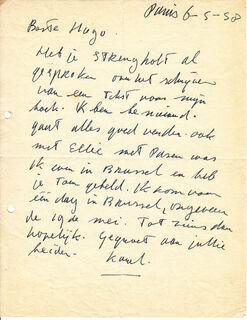 Paris 6-5-58
Beste Hugo.
Heb je al
gesproken om het schrijven
van een tekst voor mijn
boek. Ik ben benieuwd.
gaat alles goed verder. ook
met Ellie met Pasen was
ik even in Brussel en heb
je Tom gebeld. Ik kom voor
één dag in Brussel, ongeveer
de 19 de mei. Tot ziens dan
hopelijk. Gegroet van jullie
beiden.
Karel.